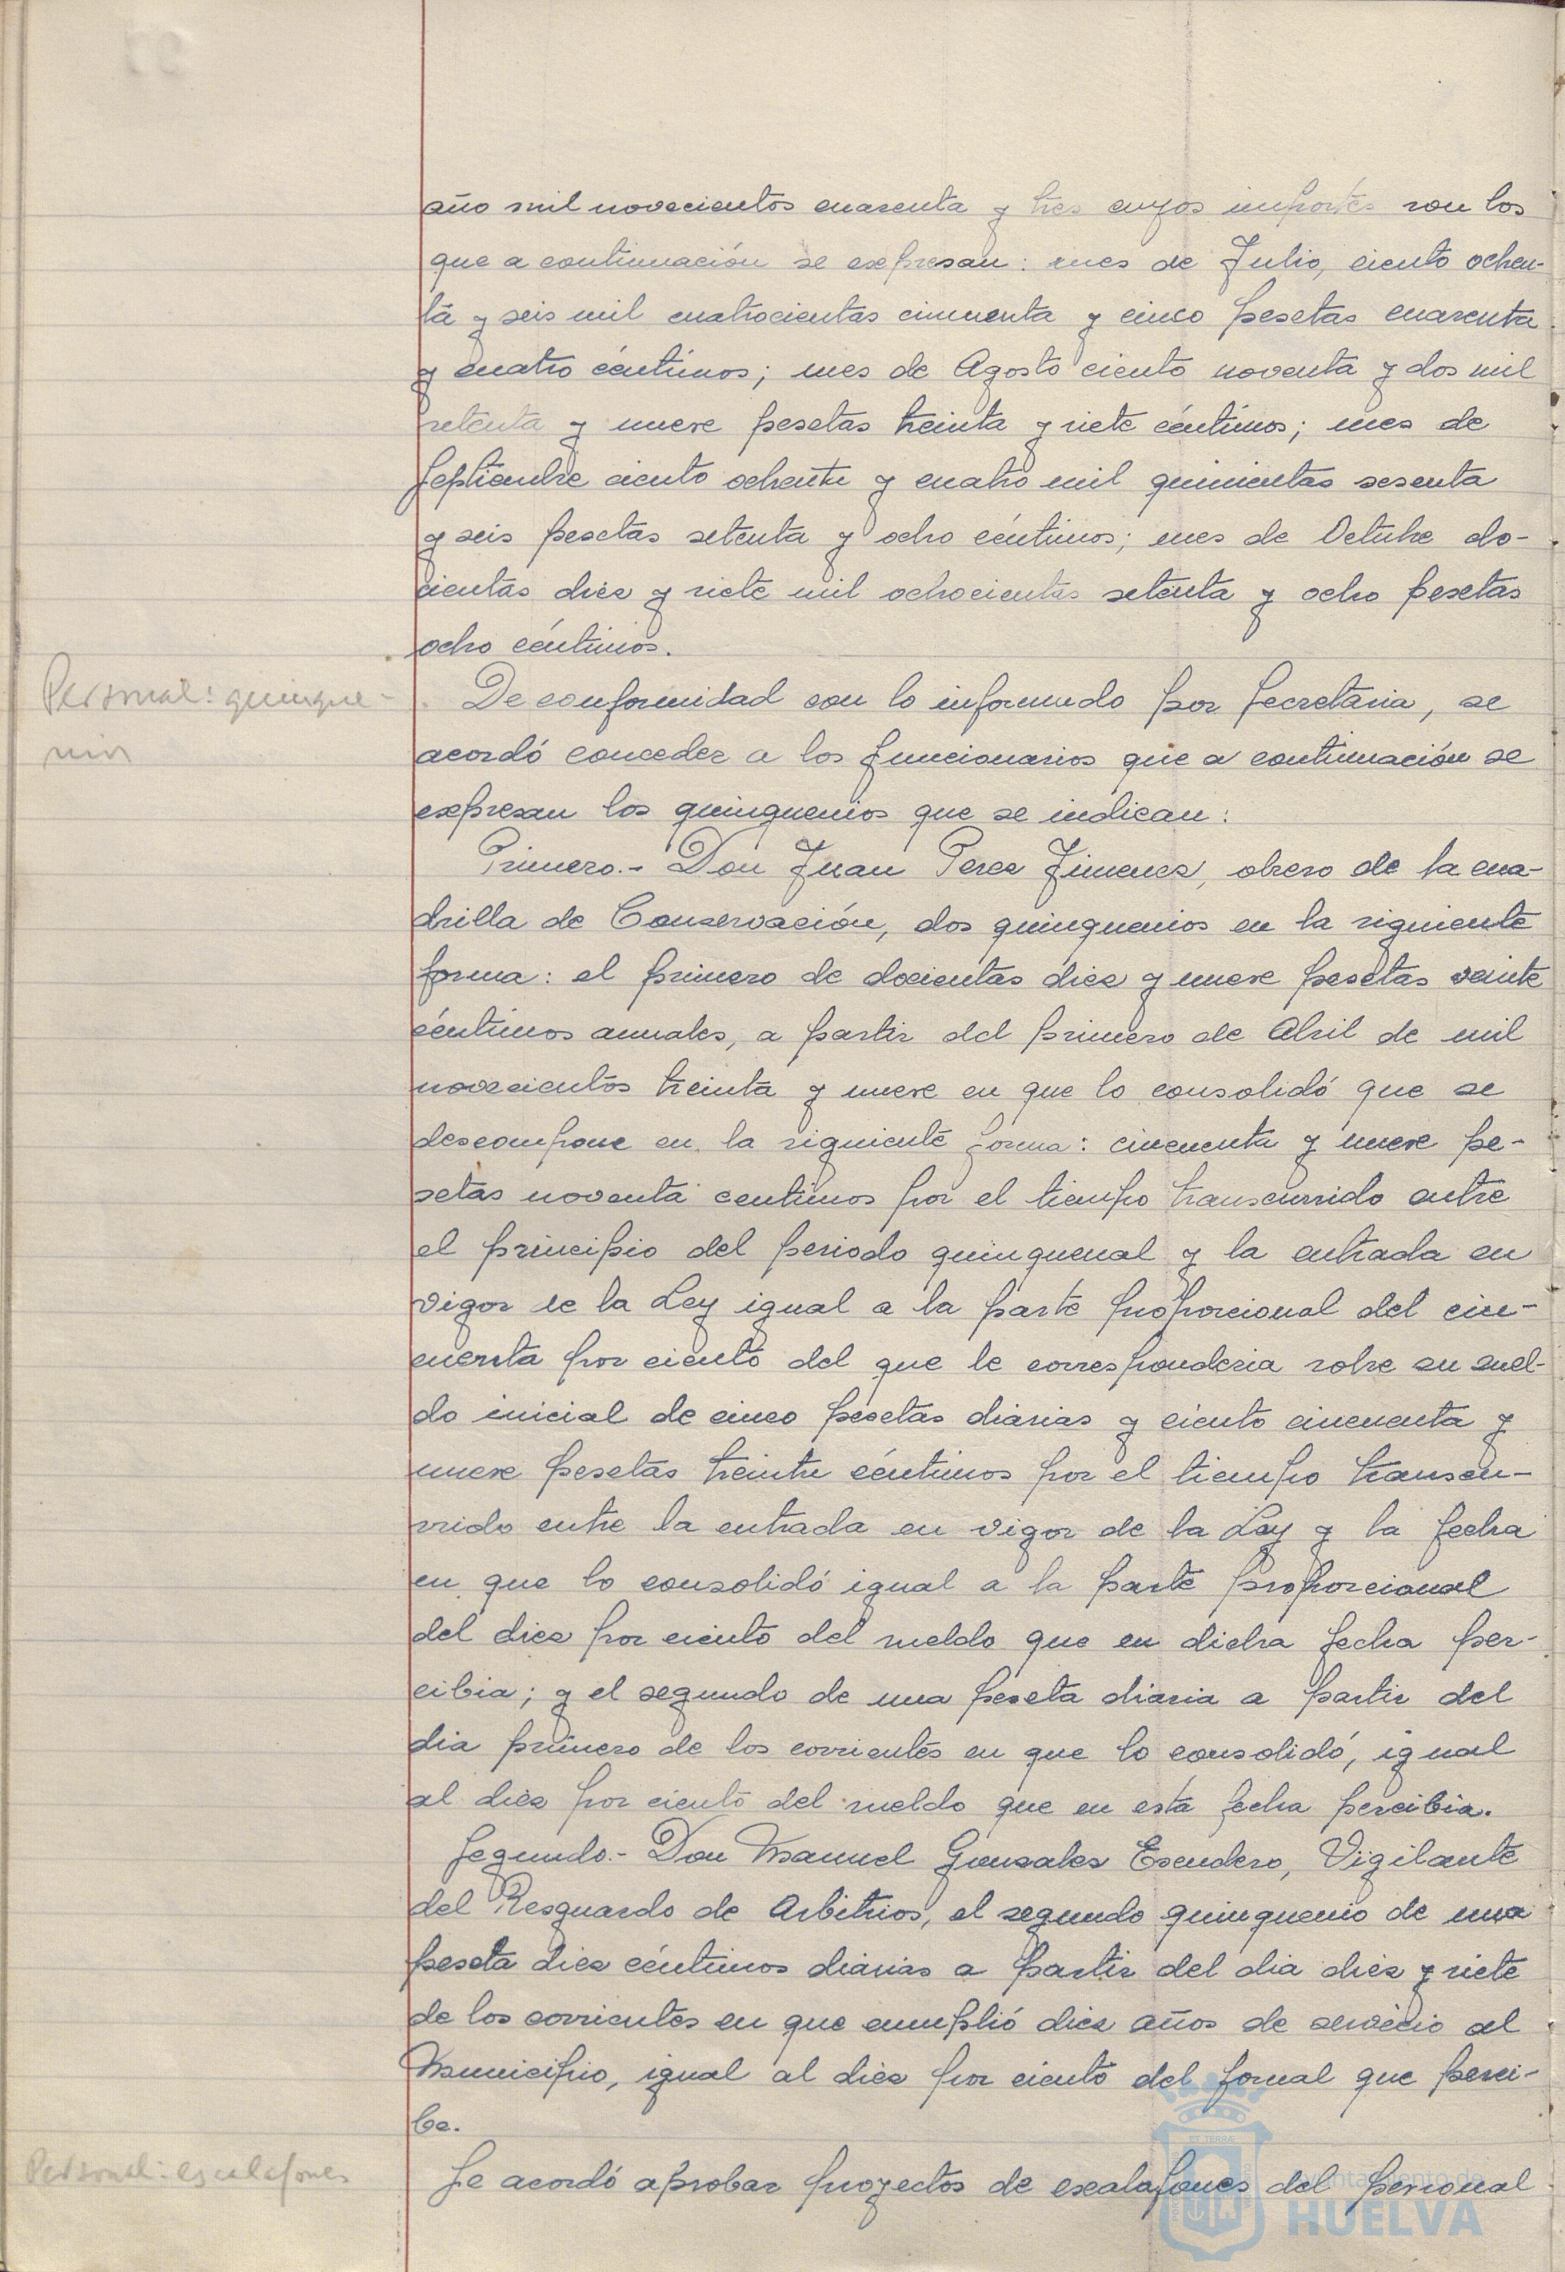 año mil novecientos cuarenta y tres cuyos importes son los
que a continuación se expresan: mes de Julio, ciento ochen-
ta y seis mil cuatrocientas cincuenta y cinco pesetas cuarenta
y cuatro céntimos; mes de Agosto ciento noventa y dos mil
setenta y nueve pesetas treinta y siete céntimos; mes de
Septiembre ciento ochenta y cuatro mil quinientas sesenta
y seis pesetas setenta y ocho céntimos; mes de Octubre do-
cientas diez y siete mil ochocientas setenta y ocho pesetas
ocho céntimos.
Personal: quinque-
nios
De conformidad con lo informado por Secretaria, se
acordó conceder a los funcionarios que a continuación se
expresan los quinquenios que se indican:
Primero.- Don Juan Perez Jimenez, obrero de la cua-
drilla de Conservación, dos quinquenios en la siguiente
forma: el primero de docientas diez y nueve pesetas veinte
céntimos anuales, a partir del primero de Abril de mil
novecientos treinta y nueve en que lo consolidó que se
descompone en la siguiente forma: cincuenta y nueve pe-
setas noventa centimos por el tiempo transcurrido entre
el principio del periodo quinquenal y la entrada en
vigor de la Ley igual a la parte proporcional del cin-
cuenta por ciento del que le corresponderia sobre su suel-
do inicial de cinco pesetas diarias y ciento cincuenta y
nueve pesetas treinta céntimos por el tiempo transcu-
rrido entre la entrada en vigor de la Ley y la fecha
en que lo consolidó igual a la parte proporcional
del diez por ciento del sueldo que en dicha fecha per-
cibia; y el segundo de una peseta diaria a partir del
dia primero de los corrientes en que lo consolidó, igual
al diez por ciento del sueldo que en esta fecha percibia.
Segundo.- Don Manuel Gonzalez Escudero, Vigilante
del Resguardo de Arbitrios, el segundo quinquenio de una
peseta diez céntimos diarias a partir del dia diez y siete
de los corrientes en que cumplió diez años de servicio al
Municipio, igual al diez por ciento del jornal que perci-
be.
Personal: escalafones
Se acordó aprobar proyectos de escalafones del personal
Ayuntamiento de
HUELVA